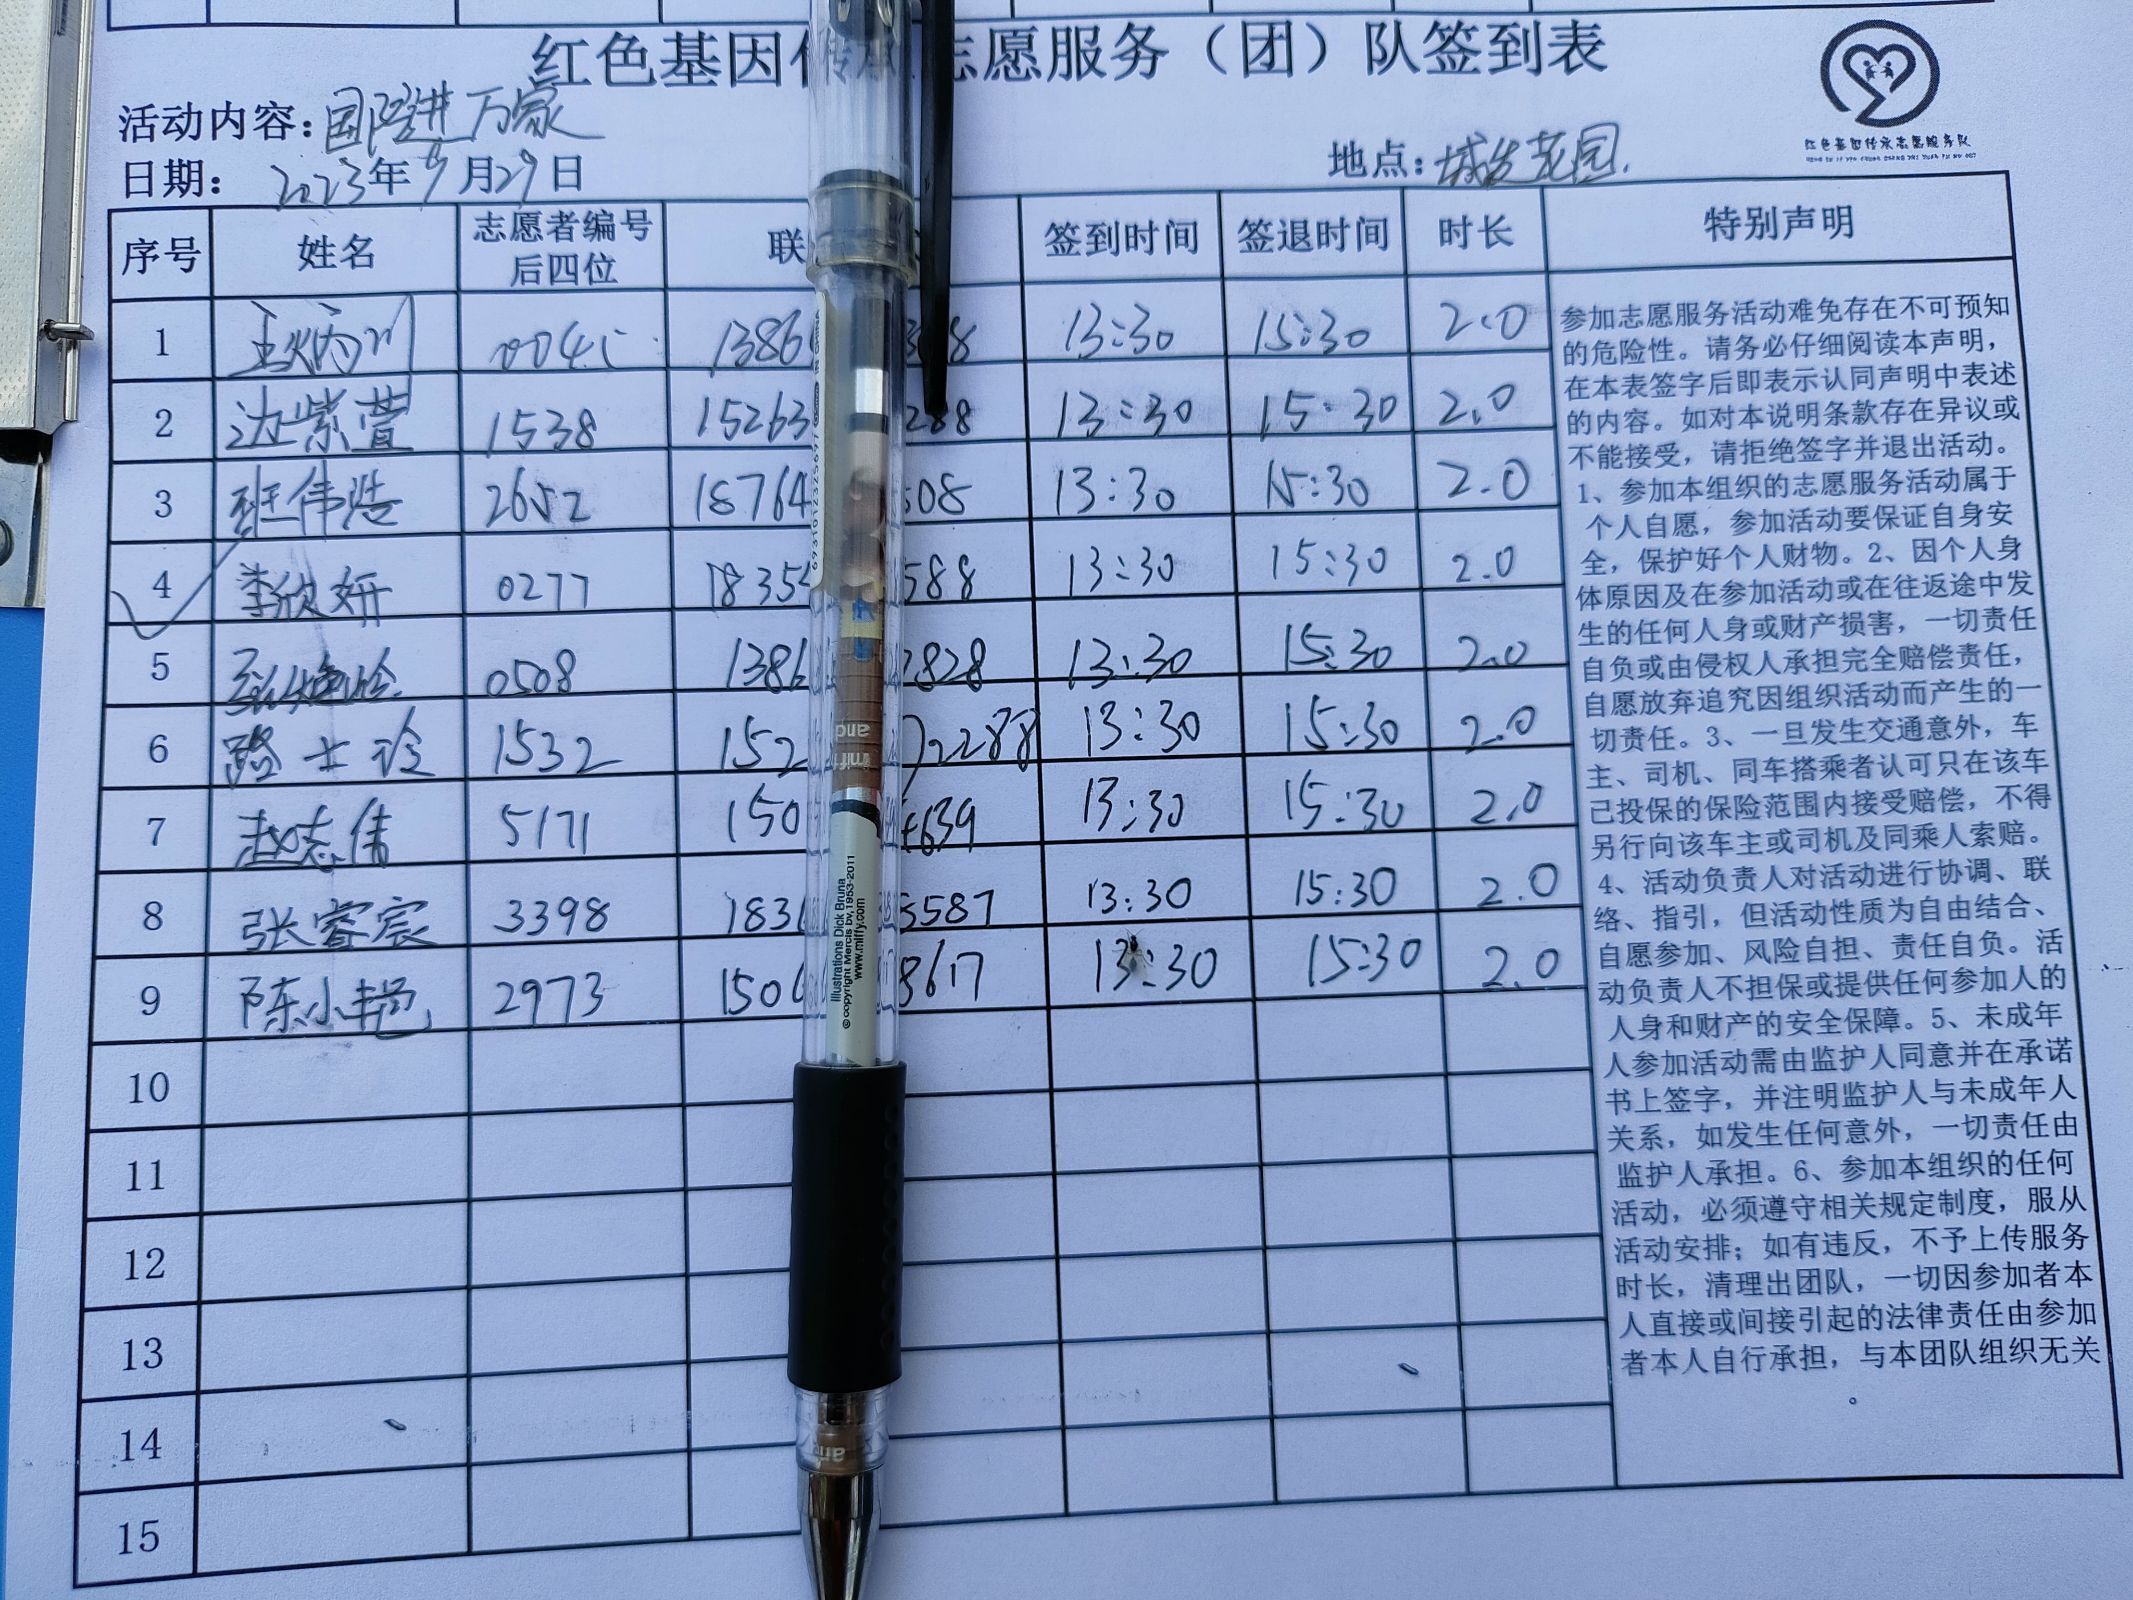 红色基因传承志愿服务（团）队签到表
活动内容：国防进万家
日期： 2023年9月29日
地点：城发花园
红色基因传承志愿服务队
序号 姓名 志愿者编号后四位 联 签到时间 签退时间 时长 特别声明
1 王炳川 004 1386 13:30 15:30 2.0
2 边紫萱 1538 15263 288 13:30 15:30 2.0
3 班伟浩 2652 18764 508 13:30 15:30 2.0
4 李欣妍 0277 18354 588 13:30 15:30 2.0
5 0508 1386 2828 13:30 15:30 2.0
6 路士玲 1532 152 2288 13:30 15:30 2.0
7 赵志伟 5171 150 639 13:30 15:30 2.0
8 张睿宸 3398 183 5587 13:30 15:30 2.0
9 陈小艳 2973 150 8617 13:30 15:30 2.0
10
11
12
13
14
15
参加志愿服务活动难免存在不可预知
的危险性。请务必仔细阅读本声明，
在本表签字后即表示认同声明中表述
的内容。如对本说明条款存在异议或
不能接受，请拒绝签字并退出活动。
1、参加本组织的志愿服务活动属于
个人自愿，参加活动要保证自身安
全，保护好个人财物。2、因个人身
体原因及在参加活动或在往返途中发
生的任何人身或财产损害，一切责任
自负或由侵权人承担完全赔偿责任，
自愿放弃追究因组织活动而产生的一
切责任。3、一旦发生交通意外，车
主、司机、同车搭乘者认可只在该车
己投保的保险范围内接受赔偿，不得
另行向该车主或司机及同乘人索赔。
4、活动负责人对活动进行协调、联
络、指引，但活动性质为自由结合、
自愿参加、风险自担、责任自负。活
动负责人不担保或提供任何参加人的
人身和财产的安全保障。5、未成年
人参加活动需由监护人同意并在承诺
书上签字，并注明监护人与未成年人
关系，如发生任何意外，一切责任由
监护人承担。6、参加本组织的任何
活动，必须遵守相关规定制度，服从
活动安排；如有违反，不予上传服务
时长，清理出团队，一切因参加者本
人直接或间接引起的法律责任由参加
者本人自行承担，与本团队组织无关
。
6931012325697
IN CHINA
and
miffy
Illustrations Dick Bruna
© copyright Mercis bv,1953-2011
www.miffy.com